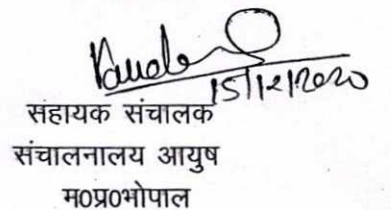 15/12/2020
सहायक संचालक
संचालनालय आयुष
म०प्र०भोपाल